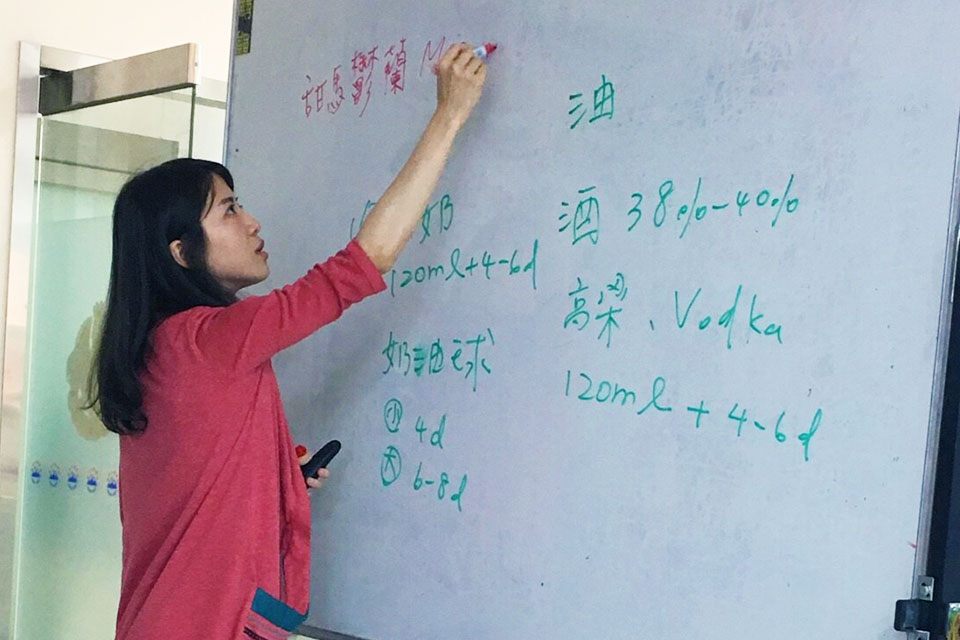 甜馬鬱蘭 M
奶
120ml+4-6d
奶油球
小 4d
大 6-8d
油
酒 38%-40%
高粱、Vodka
120ml + 4-6d